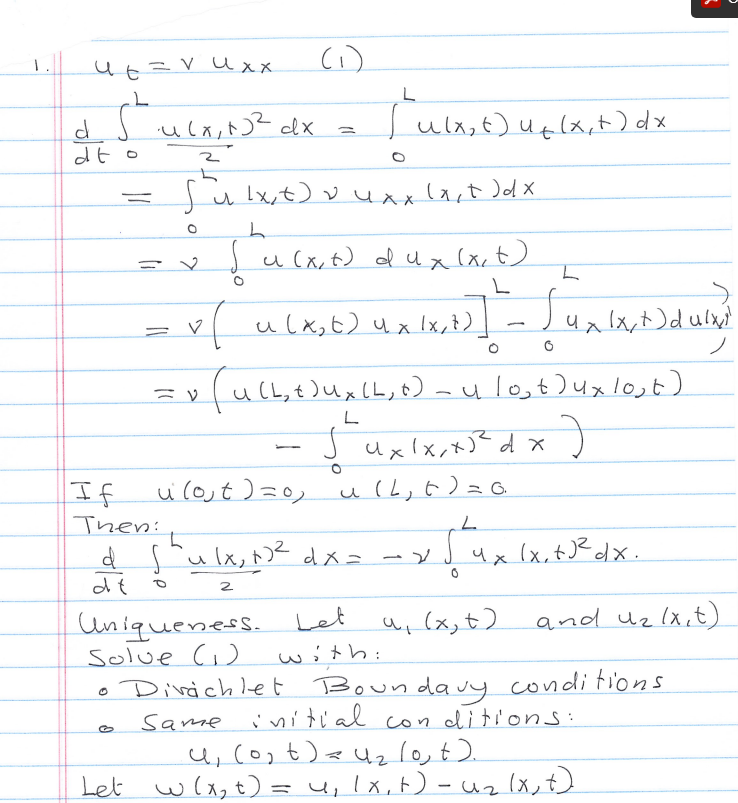 1. u_t = ν u_xx (1)
d/dt ∫_0^L u(x,t)²/2 dx = ∫_0^L u(x,t) u_t(x,t) dx
= ∫_0^L u(x,t) ν u_xx(x,t) dx
= ν ∫_0^L u(x,t) d u_x(x,t)
= ν ( u(x,t) u_x(x,t) ]_0^L - ∫_0^L u_x(x,t) d u(x,t) )
= ν ( u(L,t) u_x(L,t) - u(0,t) u_x(0,t)
- ∫_0^L u_x(x,t)² dx )
If u(0,t) = 0, u(L,t) = 0.
Then:
d/dt ∫_0^L u(x,t)²/2 dx = - ν ∫_0^L u_x(x,t)² dx.
Uniqueness. Let u_1(x,t) and u_2(x,t)
Solve (1) with:
• Dirichlet Boundary conditions
• Same initial conditions:
u_1(0,t) = u_2(0,t).
Let w(x,t) = u_1(x,t) - u_2(x,t)